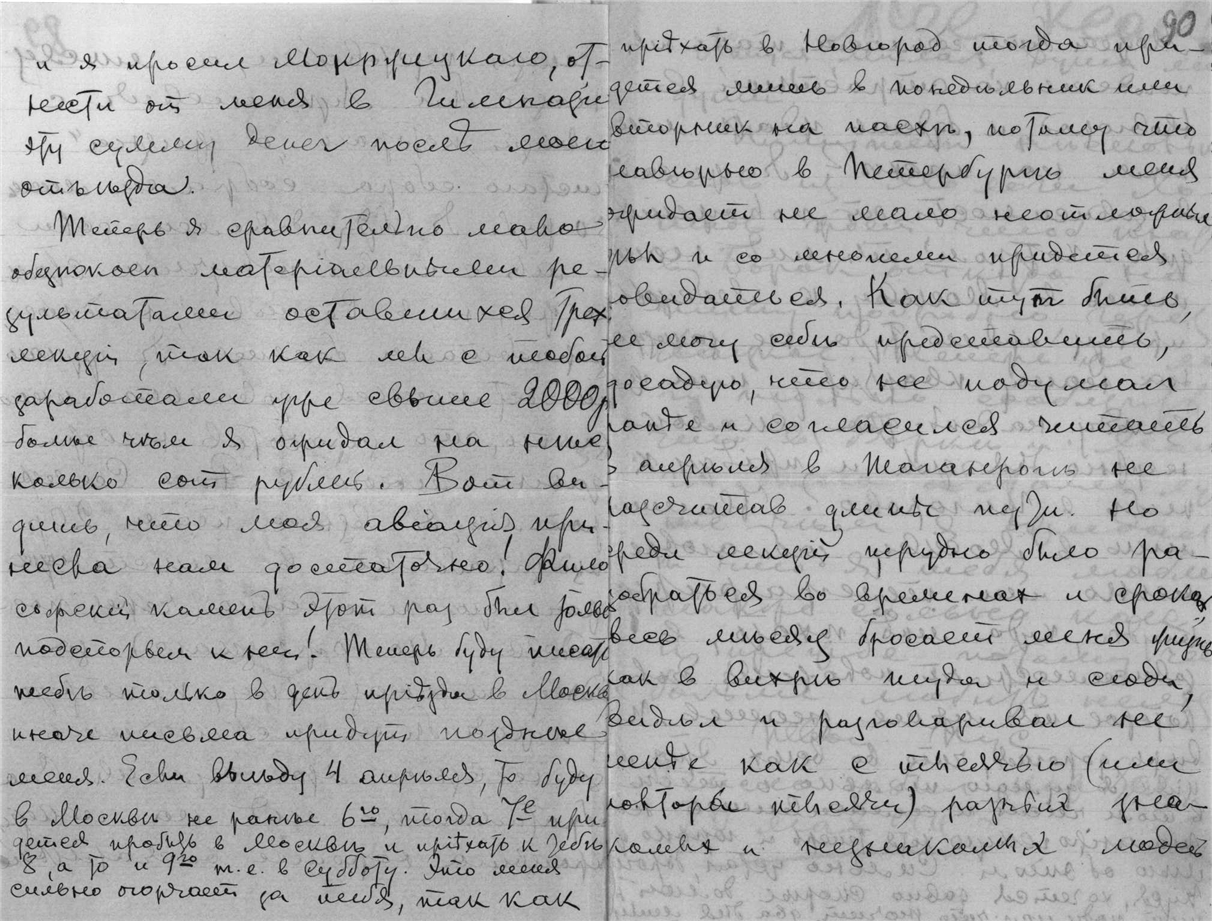 и я просил Мокржицкаго, от-
нести от меня в Гимнази
эту сумму денег послѣ моего
отъѣзда.
Теперь я сравнительно мало
обезпокоен матеріальными ре-
зультатами оставшихся трех
лекцій, так как мы с тобой
заработали уже свыше 2000р
болѣе чѣм я ожидал на нѣс
колько сот рублей. Вот ви-
дишь, что моя авіація, при-
несла нам достаточно! Фило
софскій камень этот раз был только
подспорьем к ней! Теперь буду писать
тебѣ только в день пріѣзда в Москв
иначе письма придут позднѣе
меня. Если выѣду 4 апрѣля, то буду
в Москвѣ не ранѣе 6го, тогда 7е при
дется пробыть в Москвѣ и пріѣхать к тебѣ
8, а то и 9го т.е. в субботу. Это меня
сильно огорчает за тебя, так как
90
пріѣхать в Новгород тогда при-
дется лишь в понедѣльник или
вторник на пасхѣ, потому что
навѣрно в Петербургѣ меня
ожидает не мало неотложных
дѣл и со многими придется
повидаться. Как тут быть,
не могу себѣ представить,
досадую, что не подумал
ранѣе и согласился читать
3 апрѣля в Таганрогѣ не
разсчитав длины пути. Но
среди лекцій трудно было ра-
зобраться во временах и сроках
весь мѣсяц бросает меня жизнь
как в вихрѣ туда и сюда,
видѣл и разговаривал не
менѣе как с тысячью (или
полторы тысячи) разных зна-
комых и незнакомых людей